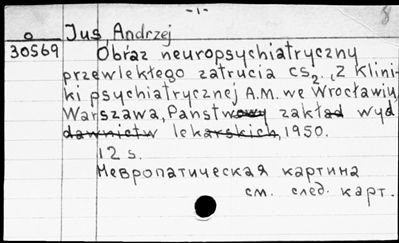 -1-
8
o Jus Andrzej
30569 Obraz neuropsychiatryczny
przewlekłego zatrucia CS2., Z klini-
ki psychiatrycznej A.M. we Wrocławiu,
Warszawa, Państwowy zakład wyd
dawnictw lekarskich, 1950.
12 s.
Невропатическая картина
см. след. карт.